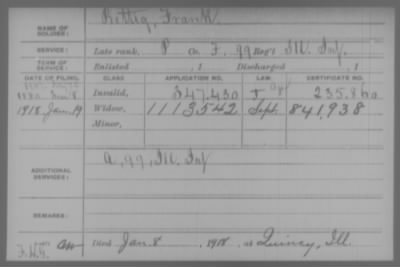 NAME OF SOLDIER: Rettig, Frank
SERVICE: Late rank, P Co. F, 99 Reg't Ill. Inf.
TERM OF SERVICE: Enlisted , 1 Discharged , 1
DATE OF FILING. CLASS. APPLICATION NO. LAW. CERTIFICATE NO.
Invalid, 347.430 235.860
1918 Jan. 19 Widow, 1113542 Sept. 841,938
Minor,
ADDITIONAL SERVICES: A, 99, Ill. Inf
REMARKS:
Died Jan. 8 , 1918, at Quincy, Ill.